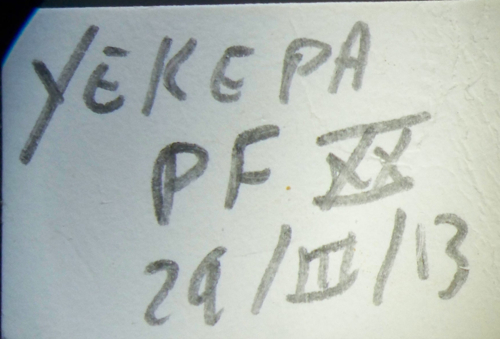 YEKEPA
PF XX
29/III/13